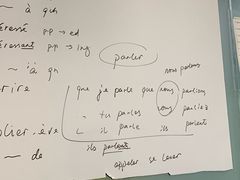 ~ à qn
pp → ed
pp → ing
parler
~ à qn
nous parlons
que je parle que nous parlions
tu parles vous parliez
il parle ils parlent
ils parlent
appeler se lever
~ de